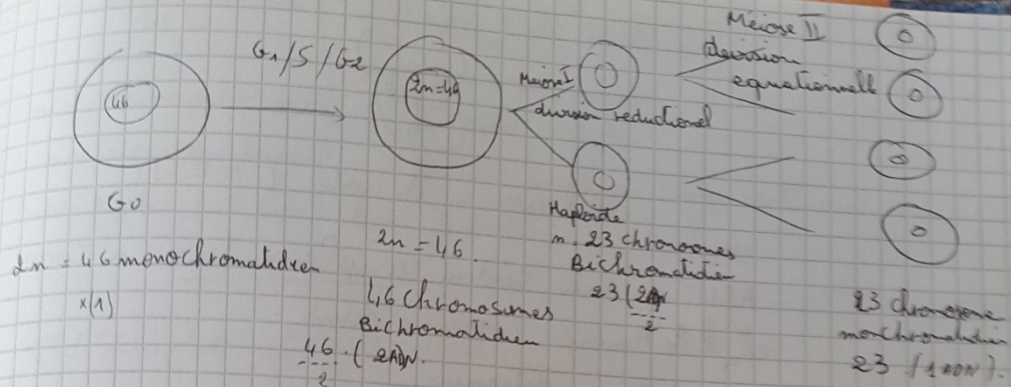 G1/S/G2
46
2n=46
G0
2n = 46 monochromatidien
x(1)
2n = 46.
46 chromosomes
Bichromatidien
46 . ( 2ADN.
2
Meiose I
division reductionel
Haploide
n. 23 chromosomes
Bichromatidien
23 (2
2
Meiose II
division
equationnelle
23 chromosome
monochromatidien
23 (1 ADN).